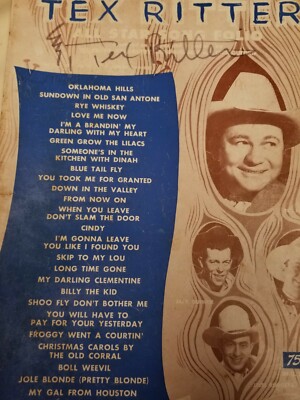 TEX RITTER
ALL STAR SONG FOLIO
Tex Ritter
OKLAHOMA HILLS
SUNDOWN IN OLD SAN ANTONE
RYE WHISKEY
LOVE ME NOW
I'M A BRANDIN' MY
DARLING WITH MY HEART
GREEN GROW THE LILACS
SOMEONE'S IN THE
KITCHEN WITH DINAH
BLUE TAIL FLY
YOU TOOK ME FOR GRANTED
DOWN IN THE VALLEY
FROM NOW ON
WHEN YOU LEAVE
DON'T SLAM THE DOOR
CINDY
I'M GONNA LEAVE
YOU LIKE I FOUND YOU
SKIP TO MY LOU
LONG TIME GONE
MY DARLING CLEMENTINE
BILLY THE KID
SHOO FLY DON'T BOTHER ME
YOU WILL HAVE TO
PAY FOR YOUR YESTERDAY
FROGGY WENT A COURTIN'
CHRISTMAS CAROLS BY
THE OLD CORRAL
BOLL WEEVIL
JOLE BLONDE (PRETTY BLONDE)
MY GAL FROM HOUSTON
75